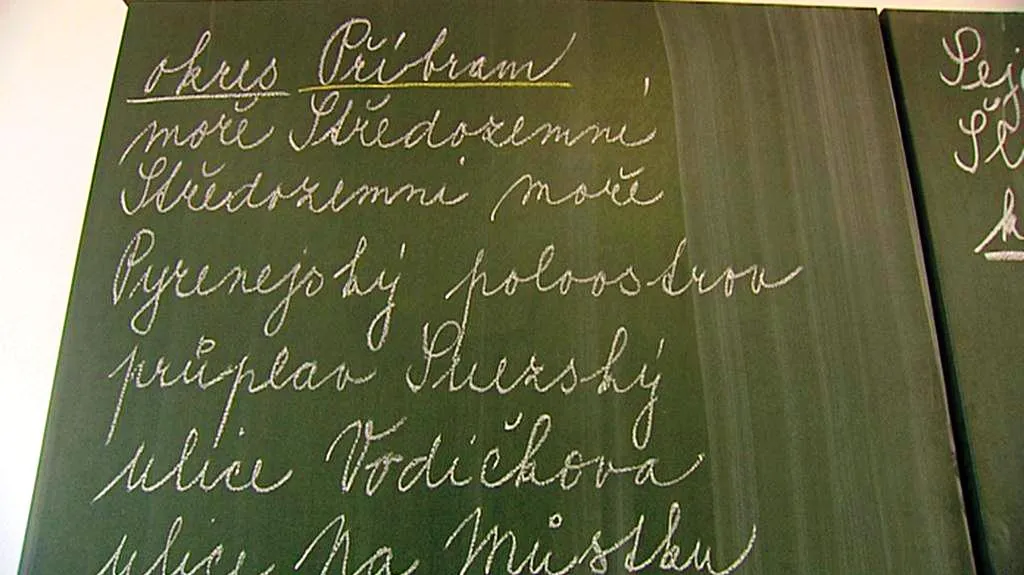 okres Příbram
moře Středozemní
Středozemní moře
Pyrenejský poloostrov
průplav Suezský
ulice Vodičkova
ulice Na Můstku